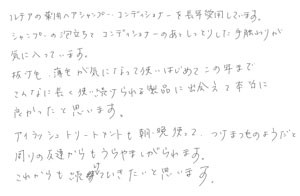 ルルドの薬用ヘアシャンプー・コンディショナーを長年愛用しています。
シャンプーの泡立ちとコンディショナーのあっしっとりした手触りが
気に入っています。
抜け毛、薄毛が気になって使いはじめてこの年まで
こんなに長く使い続けられる製品に出会えて本当に
良かったと思います。
アイラッシュトリートメントも朝・晩使って、つけまつ毛のようだと
周りの友達からもうらやましがられます。
これからも続けていきたいと思います。